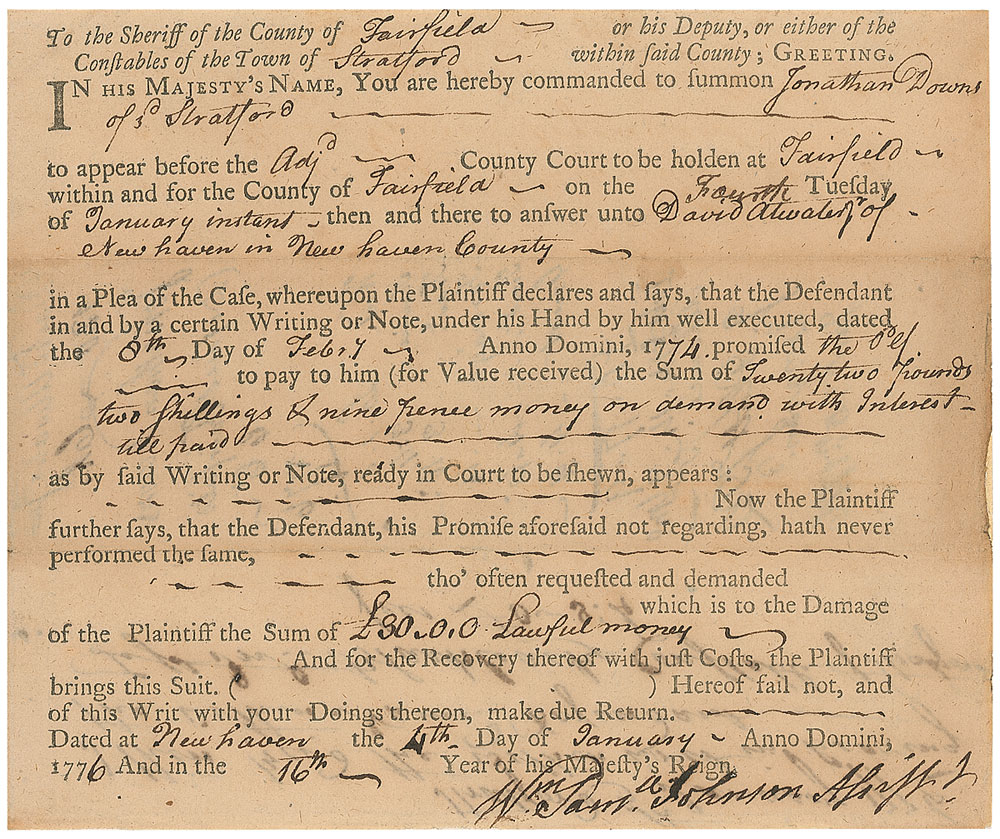 To the Sheriff of the County of Fairfield or his Deputy, or either of the
Conſtables of the Town of Stratford within ſaid County; GREETING.
IN HIS MAJESTY'S NAME, You are hereby commanded to ſummon Jonathan Downs
of sd Stratford
to appear before the Adjd County Court to be holden at Fairfield
within and for the County of Fairfield on the Fourth Tueſday
of January instant then and there to anſwer unto David Atwater Jr of
New haven in New haven County
in a Plea of the Caſe, whereupon the Plaintiff declares and ſays, that the Defendant
in and by a certain Writing or Note, under his Hand by him well executed, dated
the 8th Day of Febry Anno Domini, 1774 promiſed the
to pay to him (for Value received) the Sum of Twenty two pounds
two Shillings & nine pence money on demand with Interest
till paid
as by ſaid Writing or Note, ready in Court to be ſhewn, appears :
Now the Plaintiff
further ſays, that the Defendant, his Promiſe aforeſaid not regarding, hath never
performed the ſame,
tho' often requeſted and demanded
which is to the Damage
of the Plaintiff the Sum of £30.0.0 Lawful money
And for the Recovery thereof with juſt Coſts, the Plaintiff
brings this Suit. ( ) Hereof fail not, and
of this Writ with your Doings thereon, make due Return.
Dated at New haven the 4th Day of January Anno Domini,
1776 And in the 16th Year of his Majeſty's Reign.
Wm Saml Johnson Assist